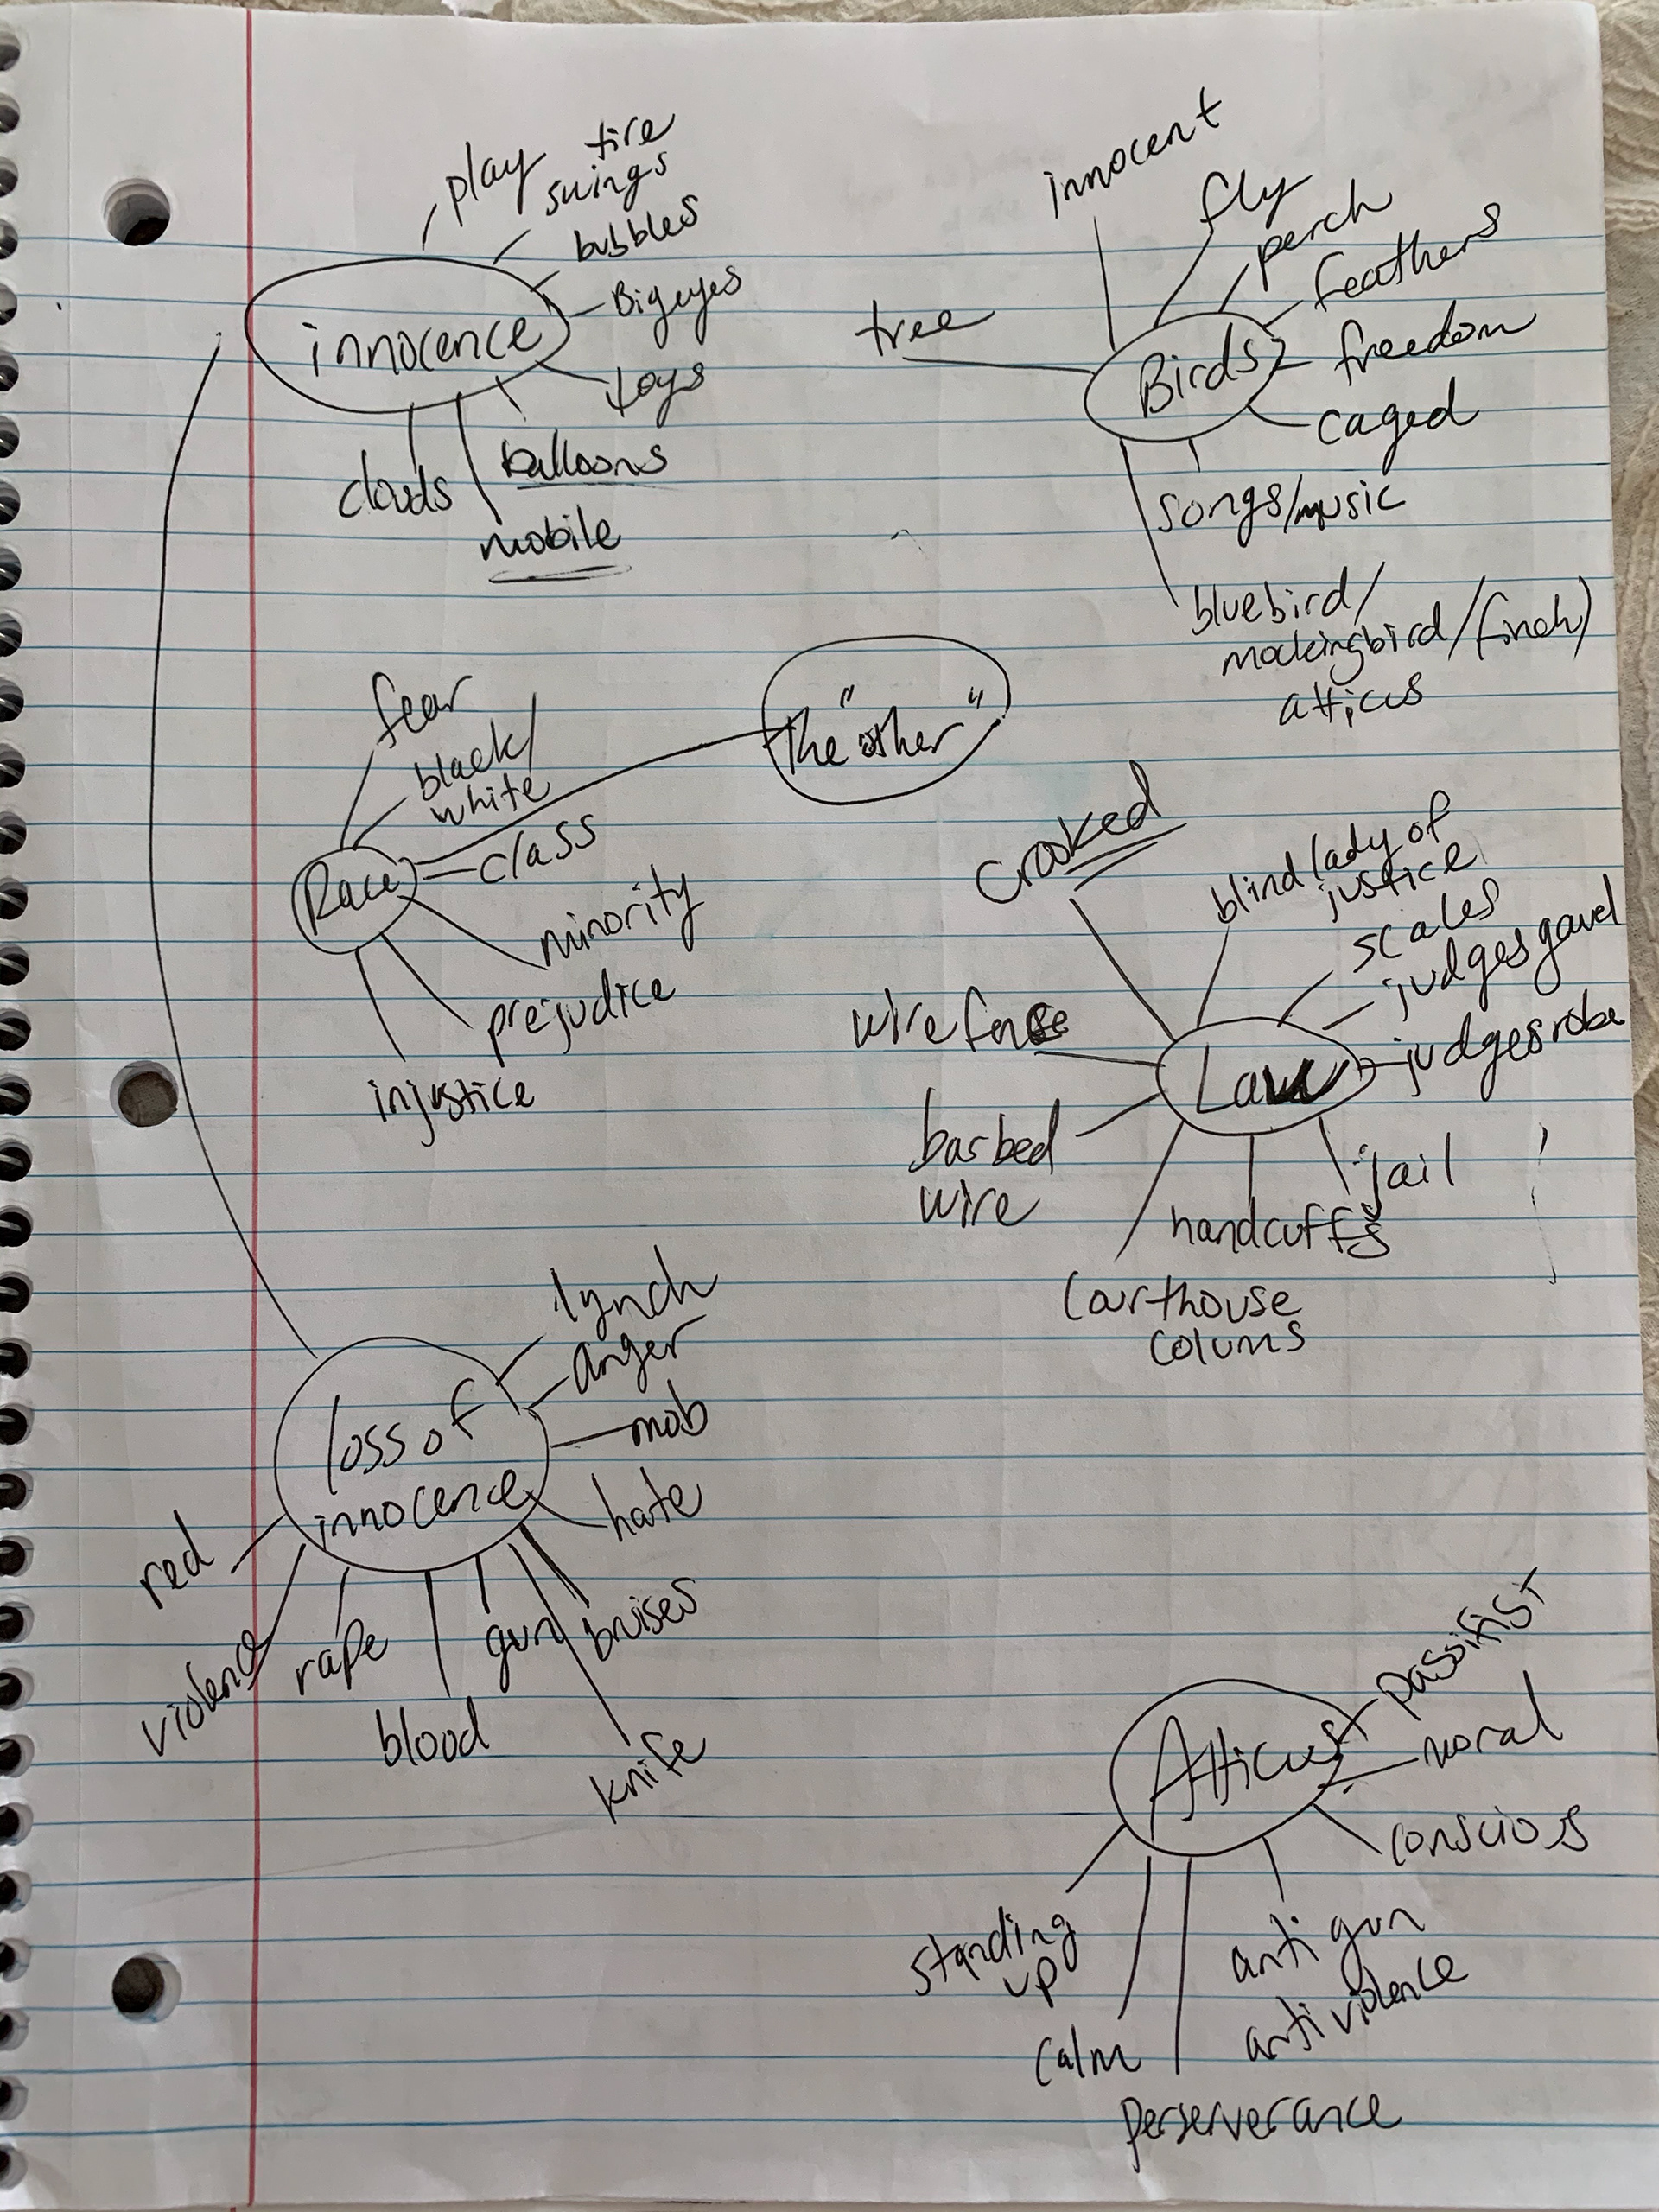 play
tire
swings
bubbles
Big eyes
innocence
toys
balloons
clouds
mobile
innocent
fly
perch
feathers
tree
Birds
freedom
caged
songs/music
bluebird/
mockingbird/(finch)
atticus
fear
black/
white
The "other"
class
Race
minority
prejudice
injustice
Crooked
blind lady of
justice
scales
judges gavel
wire fence
Law
judges robe
barbed
wire
jail
handcuffs
Courthouse
colums
lynch
anger
loss of
innocence
mob
hate
red
violence
rape
gun
bruises
blood
knife
passifist
Atticus
moral
conscious
standing
up
anti gun
anti violence
calm
perserverance